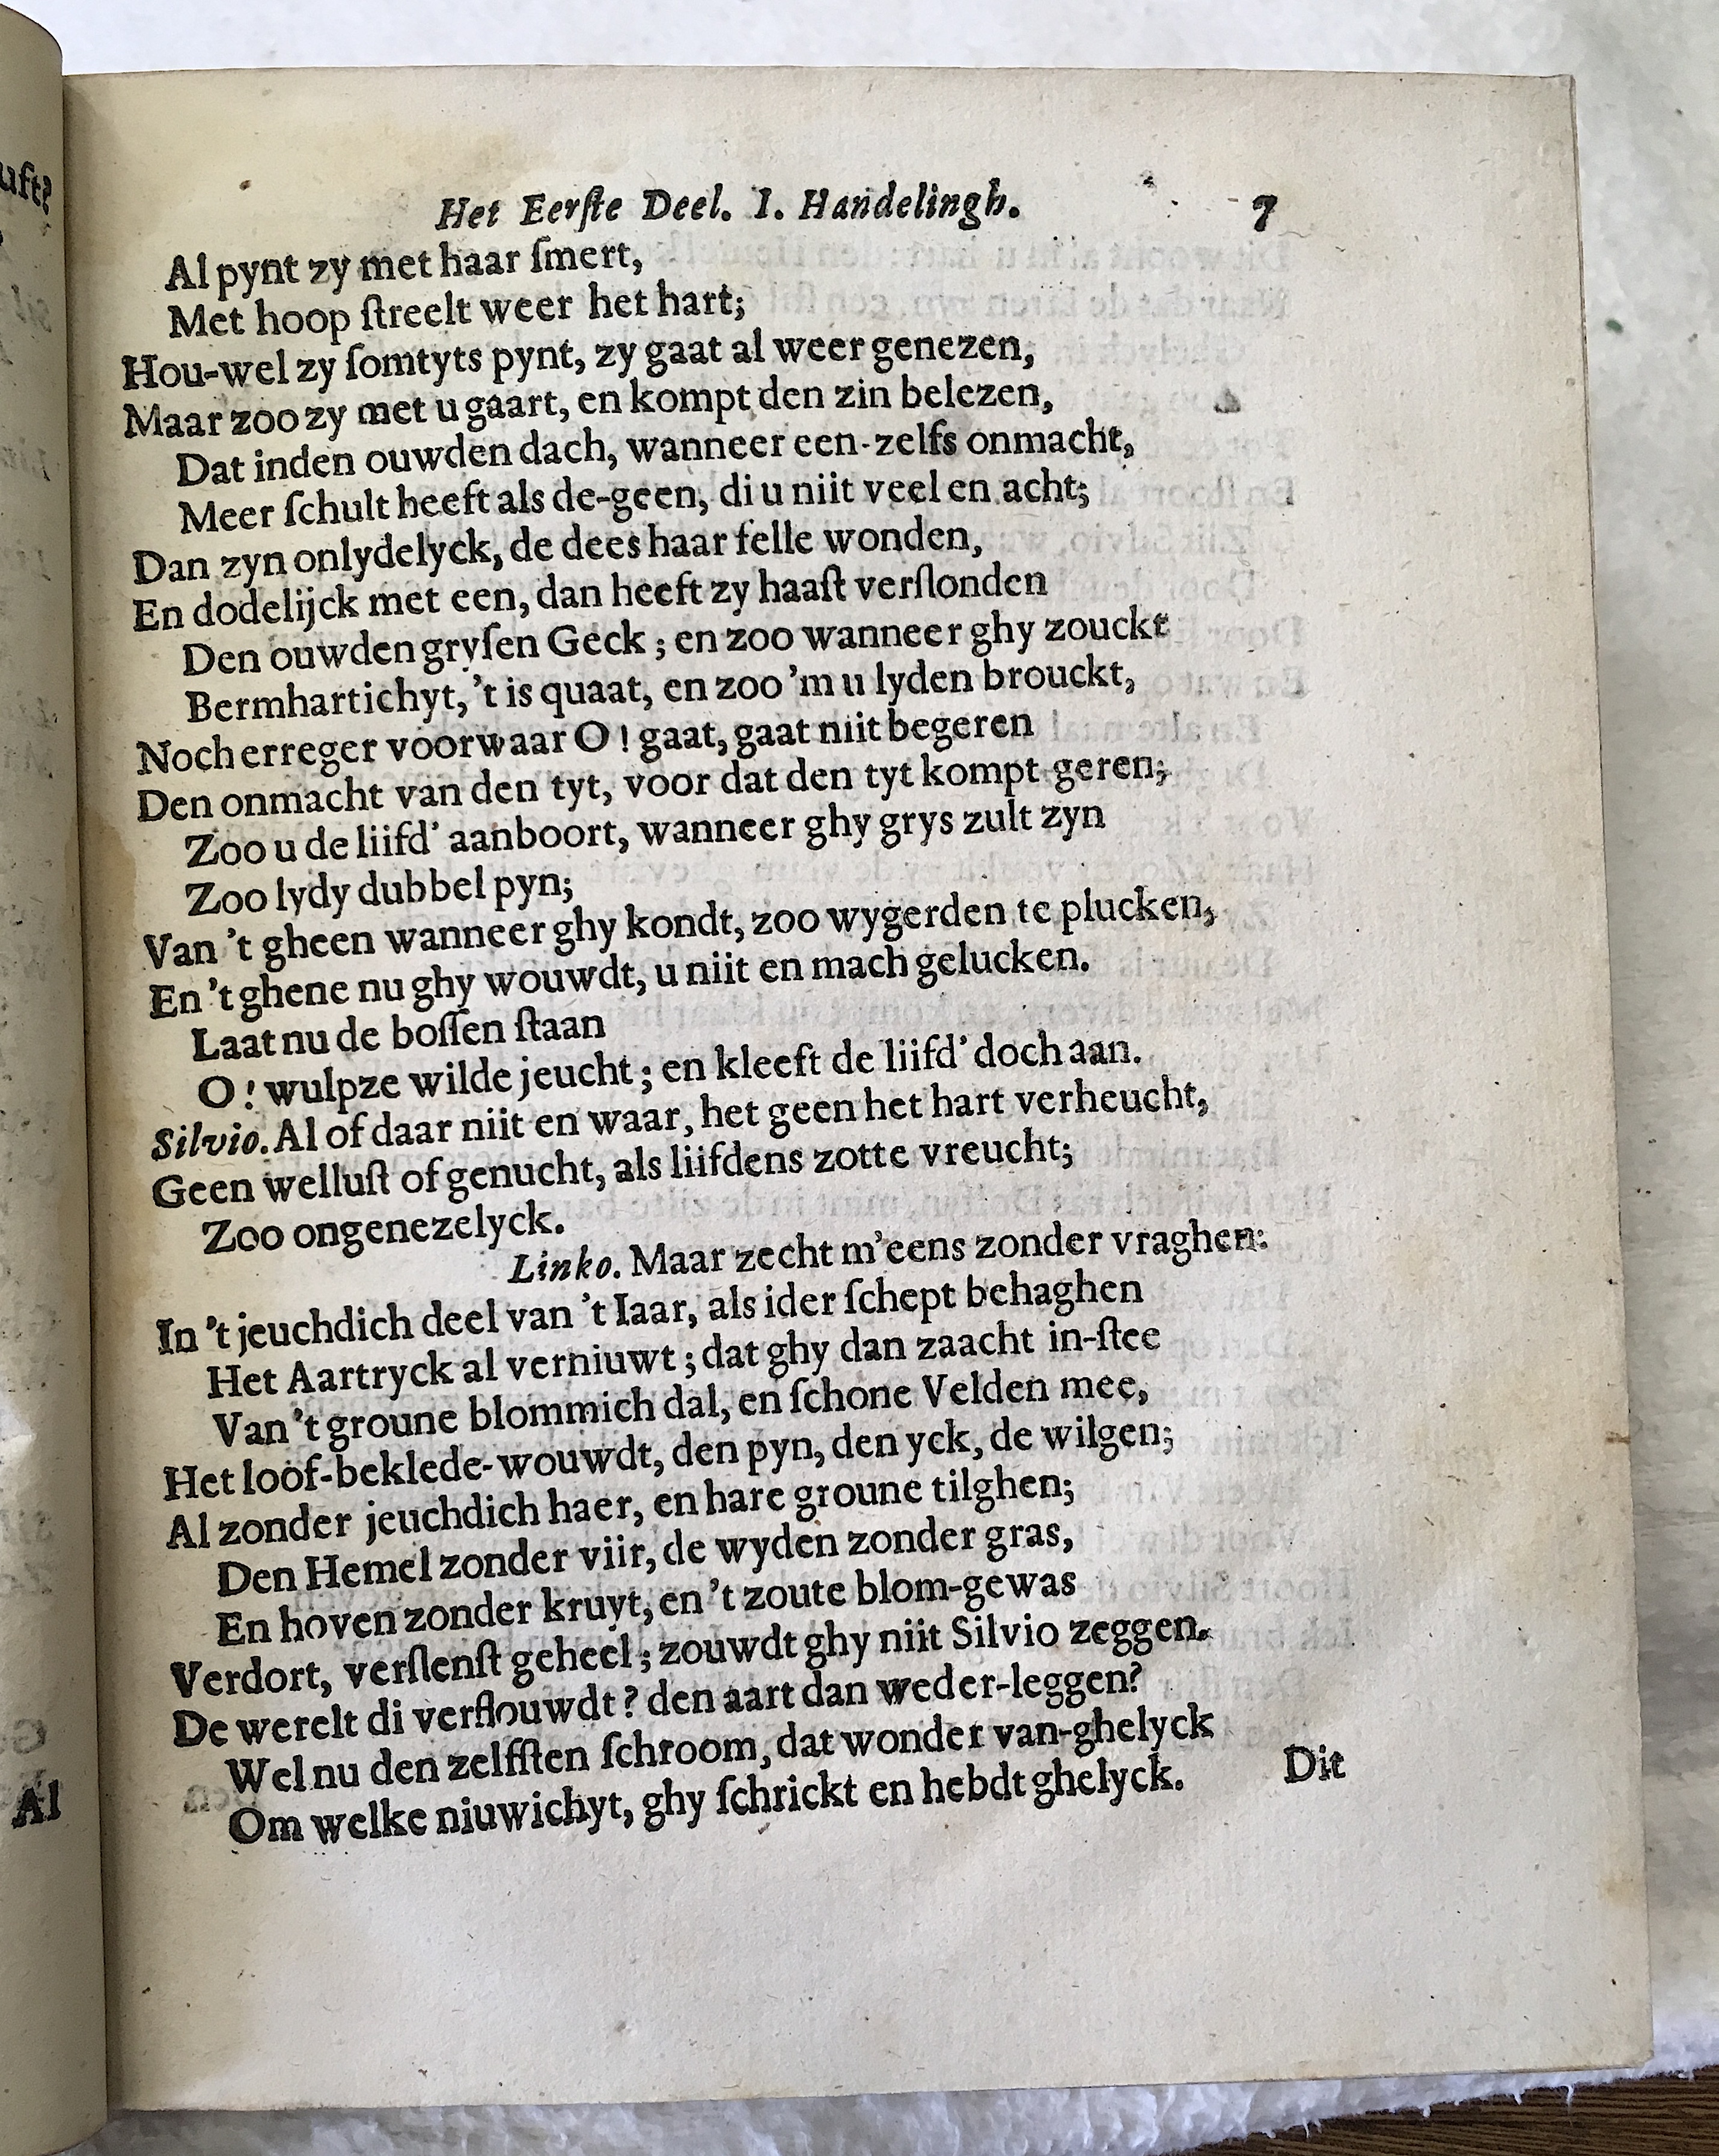 Het Eerſte Deel. I. Handelingh. 7
Al pynt zy met haar ſmert,
Met hoop ſtreelt weer het hart;
Hou-wel zy ſomtyts pynt, zy gaat al weer genezen,
Maar zoo zy met u gaart, en kompt den zin belezen,
Dat inden ouwden dach, wanneer een-zelfs onmacht,
Meer ſchult heeft als de-geen, di u niit veel en acht;
Dan zyn onlydelyck, de dees haar felle wonden,
En dodelijck met een, dan heeft zy haaſt verſlonden
Den ouwden gryſen Geck; en zoo wanneer ghy zouckt
Bermhartichyt, 't is quaat, en zoo 'm u lyden brouckt,
Noch erreger voorwaar O! gaat, gaat niit begeren
Den onmacht van den tyt, voor dat den tyt kompt geren;
Zoo u de liifd' aanboort, wanneer ghy grys zult zyn
Zoo lydy dubbel pyn;
Van 't gheen wanneer ghy kondt, zoo wygerden te plucken,
En 't ghene nu ghy wouwdt, u niit en mach gelucken.
Laat nu de boſſen ſtaan
O! wulpze wilde jeucht; en kleeft de liifd' doch aan.
Silvio. Al of daar niit en waar, het geen het hart verheucht,
Geen welluſt of genucht, als liifdens zotte vreucht;
Zoo ongenezelyck.
Linko. Maar zecht m'eens zonder vraghen:
In 't jeuchdich deel van 't Iaar, als ider ſchept behaghen
Het Aartryck al verniuwt; dat ghy dan zaacht in-ſtee
Van 't groune blommich dal, en ſchone Velden mee,
Het loof-beklede-wouwdt, den pyn, den yck, de wilgen;
Al zonder jeuchdich haer, en hare groune tilghen;
Den Hemel zonder viir, de wyden zonder gras,
En hoven zonder kruyt, en 't zoute blom-gewas
Verdort, verſlenſt geheel; zouwdt ghy niit Silvio zeggen.
De werelt di verflouwdt? den aart dan weder-leggen?
Wel nu den zelfſten ſchroom, dat wonder van-ghelyck
Om welke niuwichyt, ghy ſchrickt en hebdt ghelyck.
Dit
Al